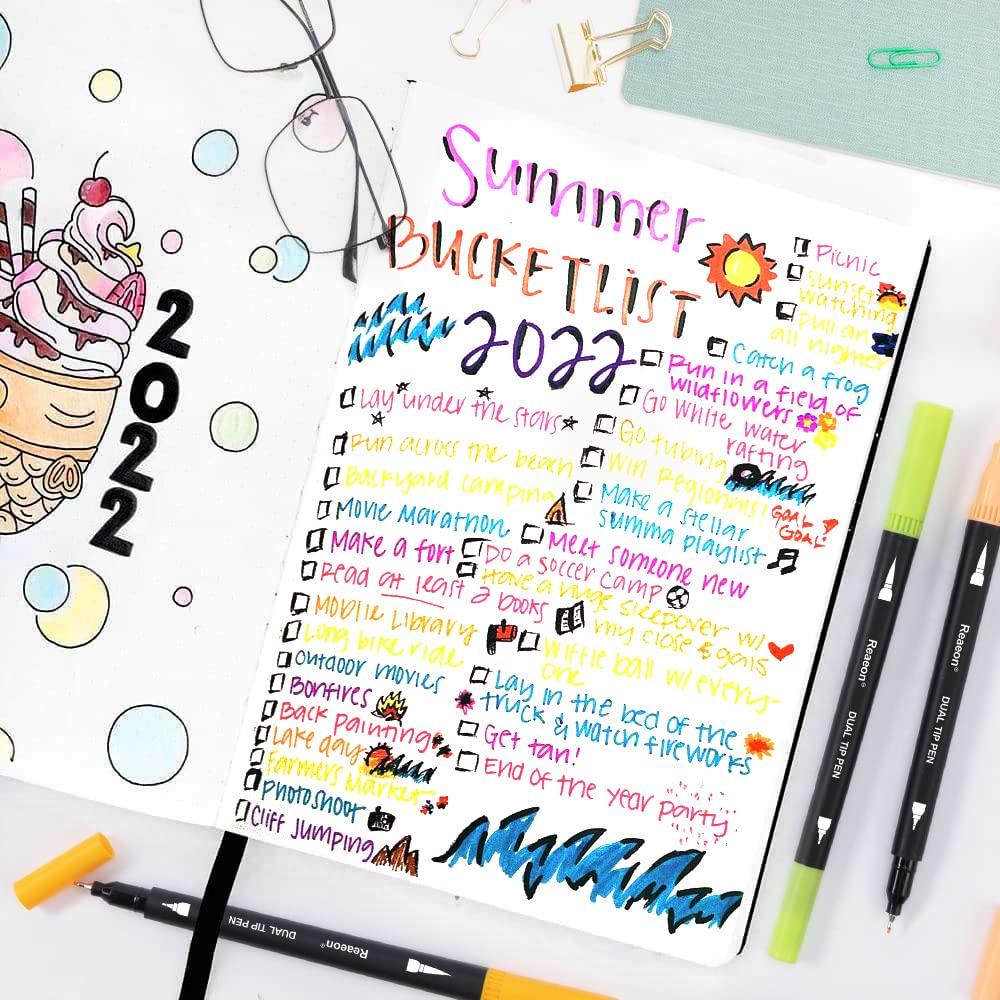 2022
Summer
BUCKETLIST
2022
Lay under the stars
Run across the beach
Backyard camping
Movie Marathon
Make a fort
Read at least 2 books
Moblie Library
Long bike ride
Outdoor movies
Bonfires
Back painting
Lake day
Farmers Market
Photoshoot
Cliff Jumping
Picnic
Sunset
watching
Pull an
all nighter
Catch a frog
Run in a field of
wildflowers
Go white water
rafting
Go tubing
Win Regionals!
GOAL!
GOAL!
Make a stellar
summa playlist
Meet someone new
Do a soccer camp
Have a huge sleepover w/
my close & gals
Wiffle ball w/ every-
one
Lay in the bed of the
truck & watch fireworks
Get tan!
End of the year party
Reaeon® DUAL TIP PEN
Reaeon® DUAL TIP PEN
Reaeon® DUAL TIP PEN